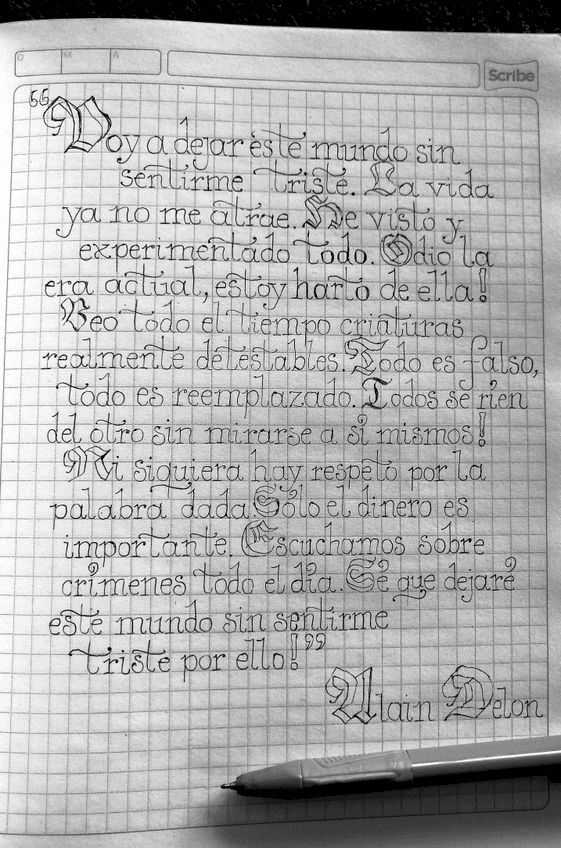 D M A
Scribe
“Voy a dejar éste mundo sin
sentirme triste. La vida
ya no me atrae. He visto y
experimentado todo. Odio la
era actual, estoy harto de ella!
Veo todo el tiempo criaturas
realmente detestables. Todo es falso,
todo es reemplazado. Todos se rien
del otro sin mirarse a sí mismos!
Ni siquiera hay respeto por la
palabra dada. Sólo el dinero es
importante. Escuchamos sobre
crímenes todo el día. Sé que dejaré
este mundo sin sentirme
triste por ello!”
Alain Delon